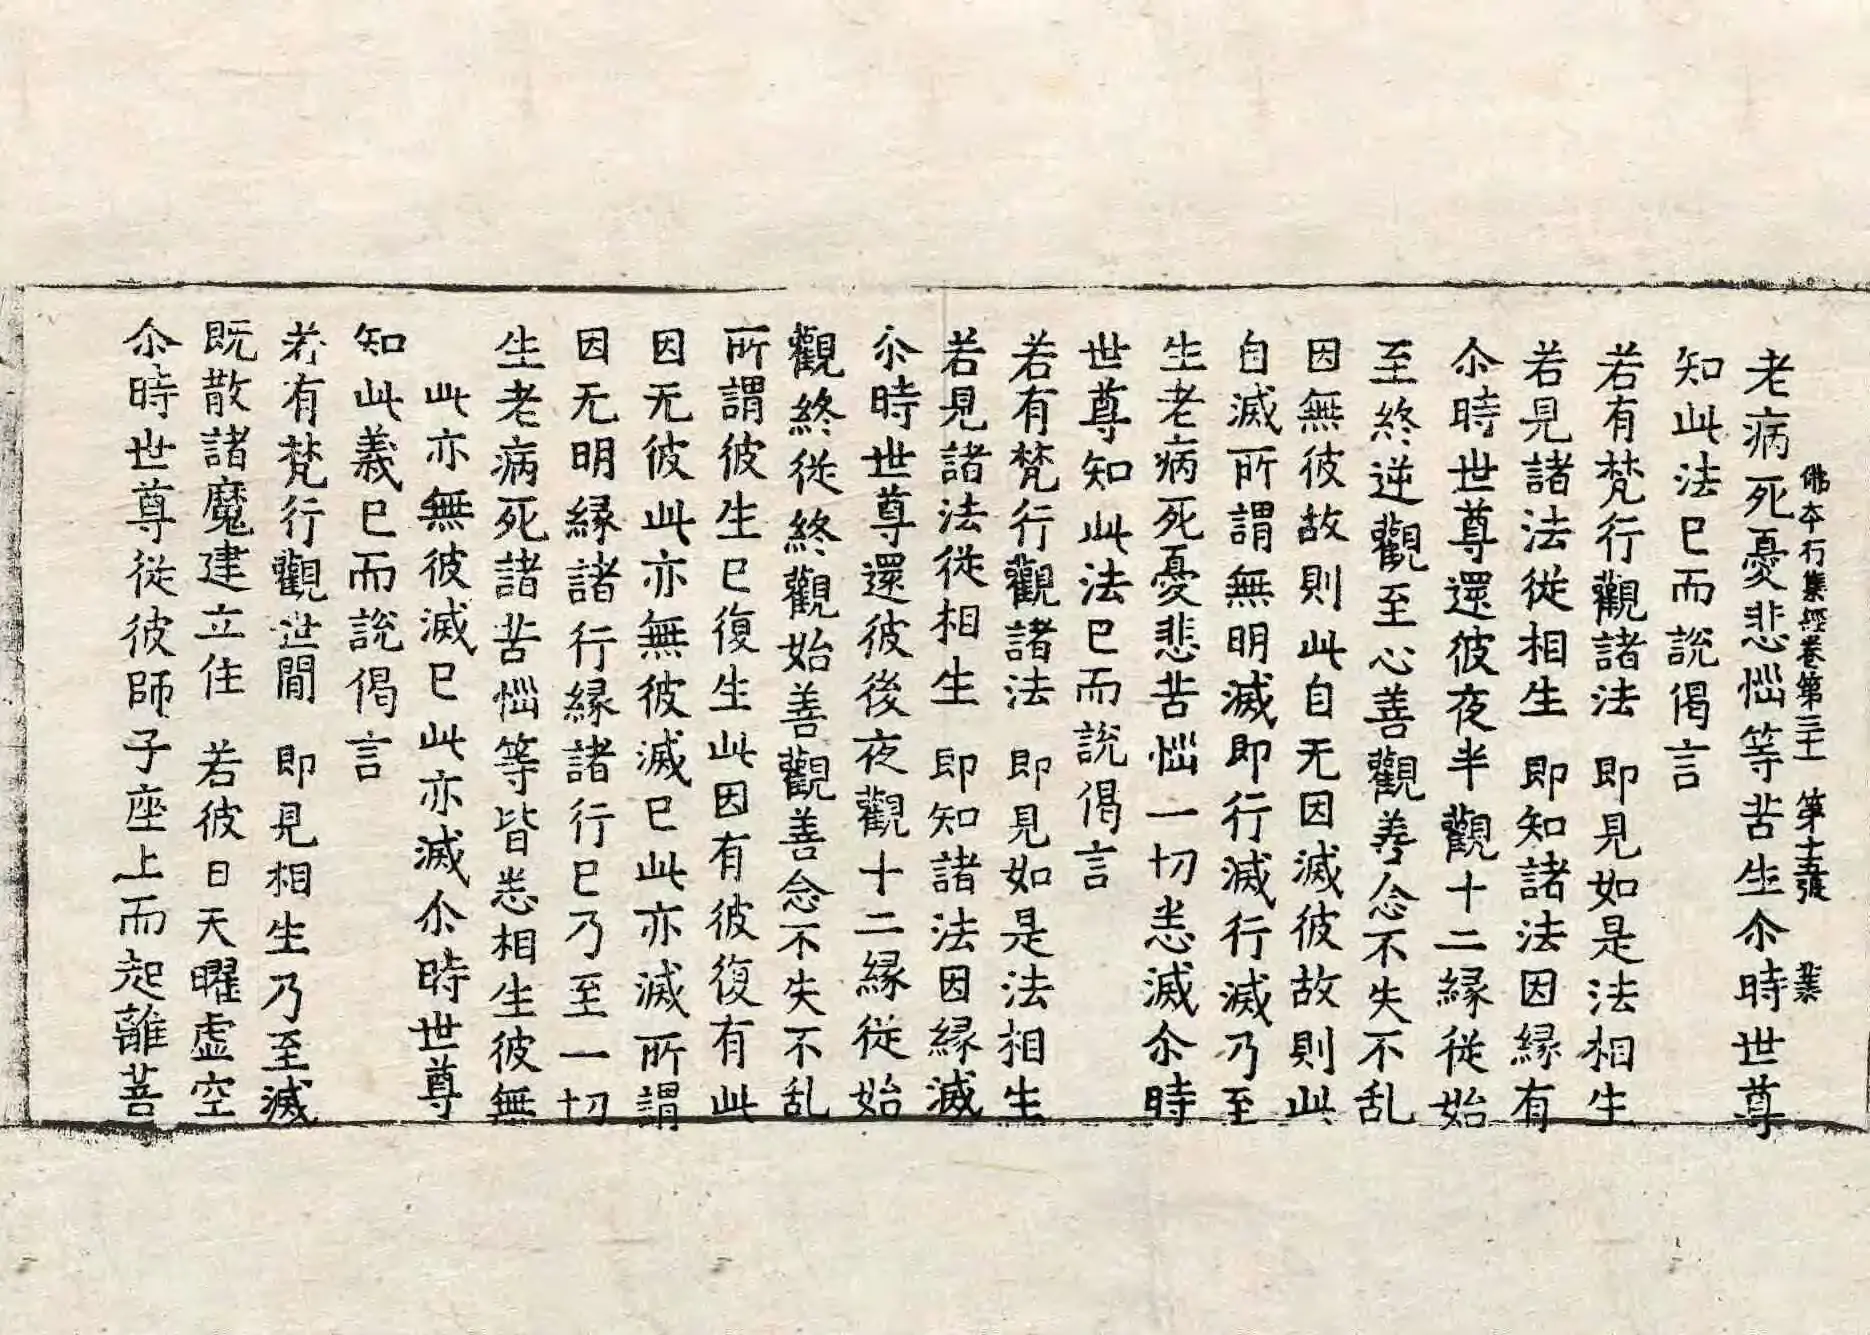 佛本行集經卷第三十一 第十五張
老病死憂悲惱等苦生尒時世尊
知此法已而說偈言
若有梵行觀諸法 即見如是法相生
若見諸法從相生 即知諸法因緣有
尒時世尊還彼夜半觀十二緣從始
至終逆觀至心善觀善念不失不乱
因無彼故則此自无因滅彼故則此
自滅所謂無明滅即行滅行滅乃至
生老病死憂悲苦惱一切悉滅尒時
世尊知此法已而說偈言
若有梵行觀諸法 即見如是法相生
若見諸法從相生 即知諸法因緣滅
尒時世尊還彼後夜觀十二緣從始
觀終從終觀始善觀善念不失不乱
所謂彼生已復生此因有彼復有此
因无彼此亦無彼滅已此亦滅所謂
因无明緣諸行緣諸行已乃至一切
生老病死諸苦惱等皆悉相生彼無
此亦無彼滅已此亦滅尒時世尊
知此義已而說偈言
若有梵行觀世間 即見相生乃至滅
既散諸魔建立住 若彼日天曜虛空
尒時世尊從彼師子座上而起離菩